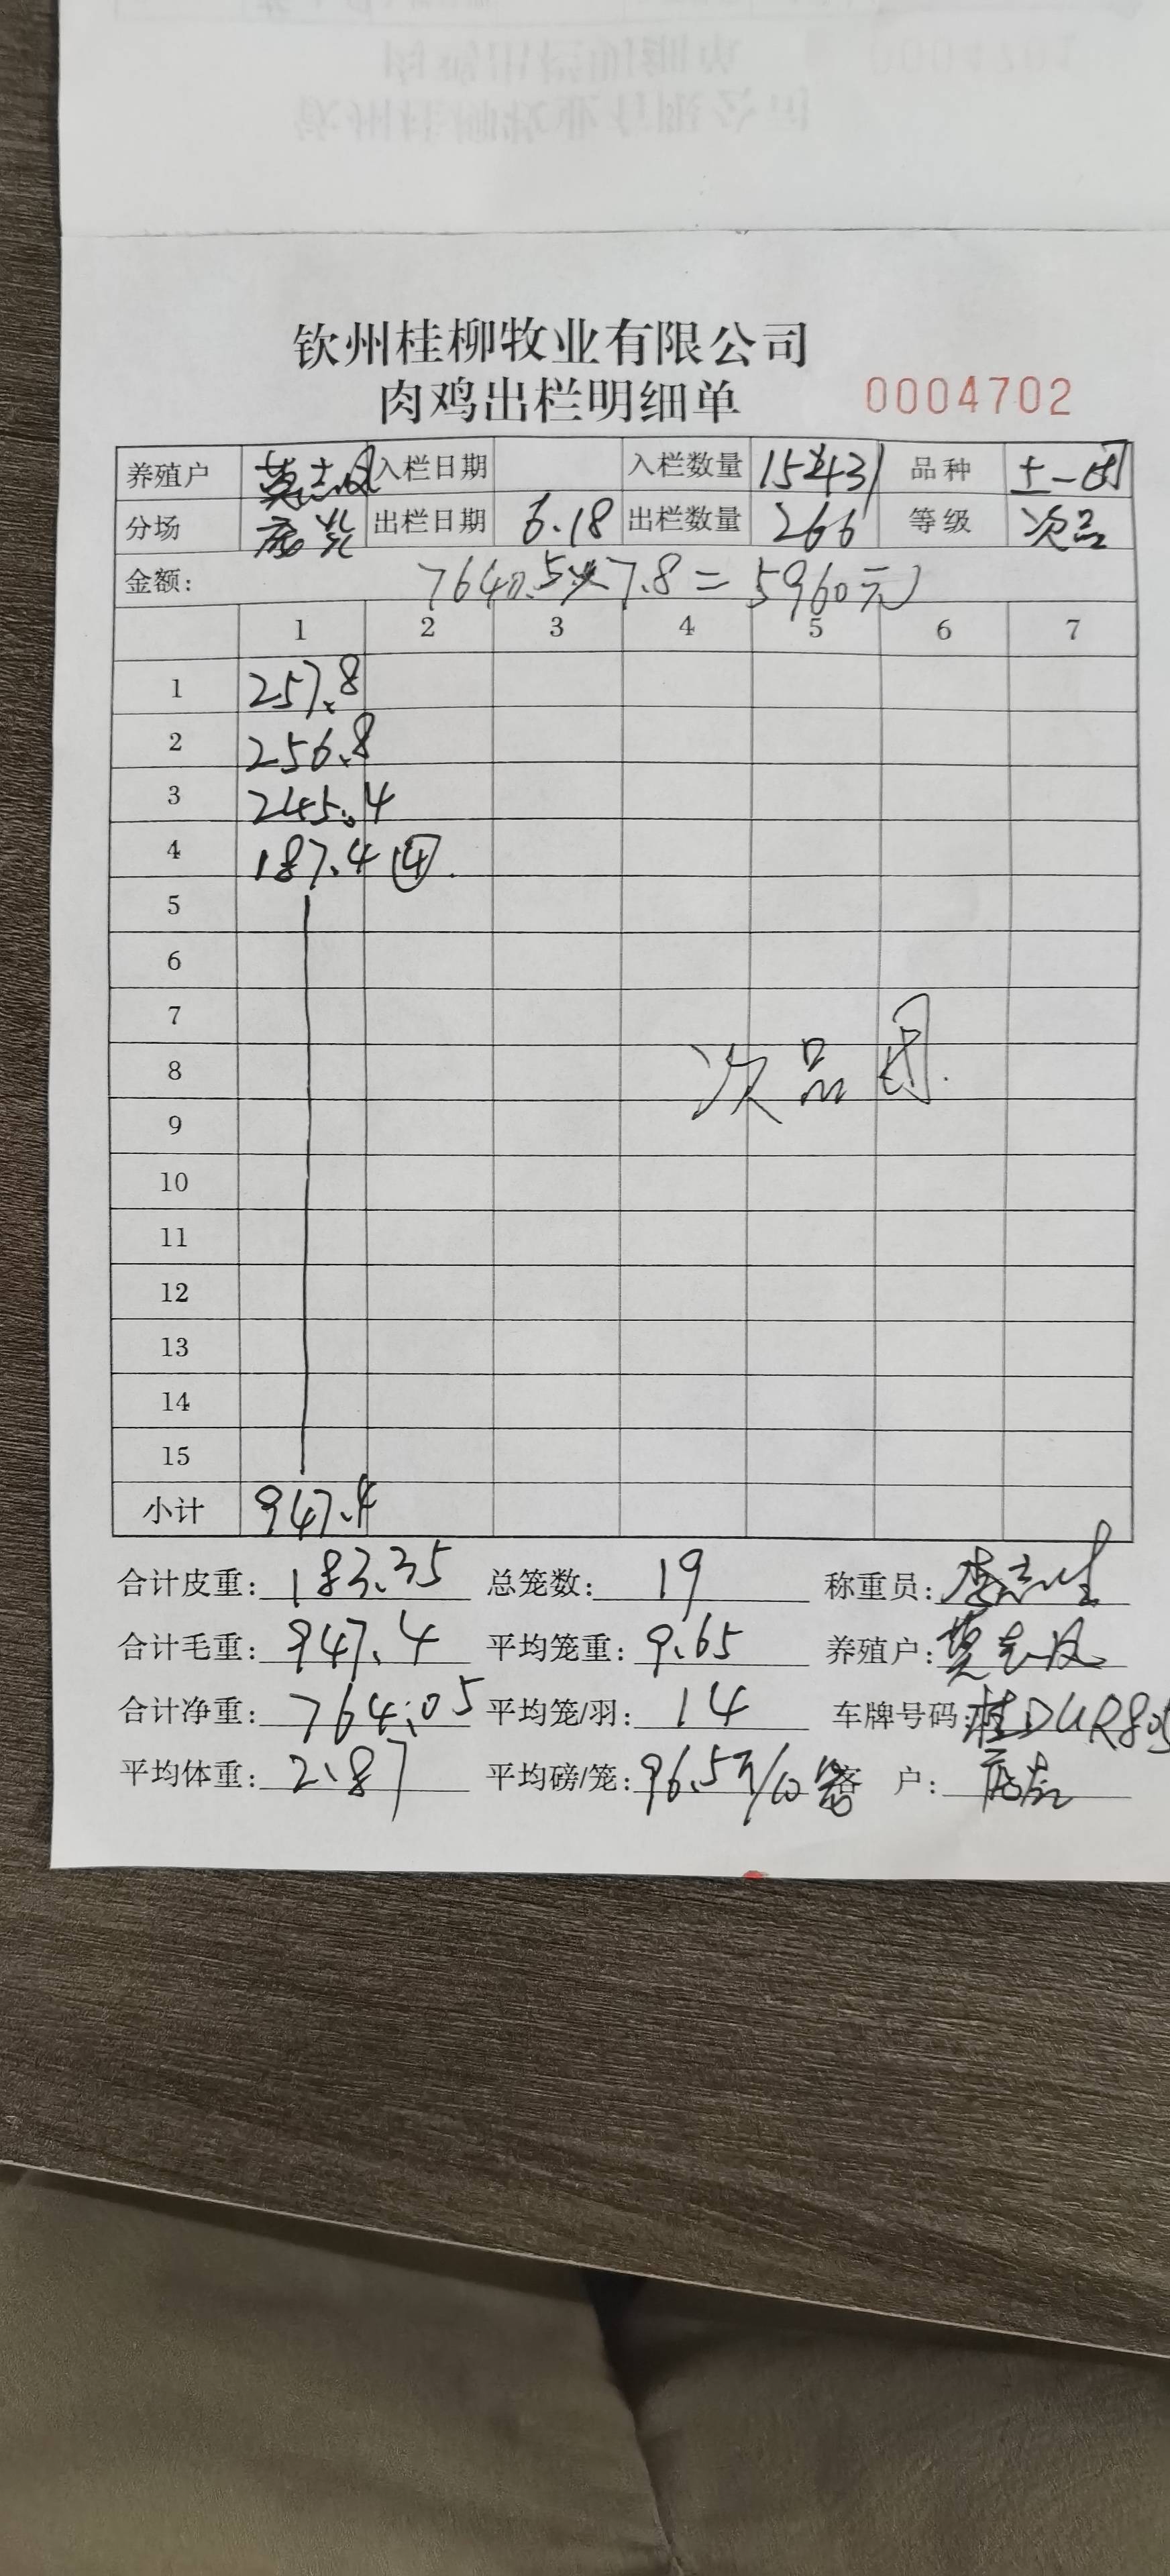 钦州桂柳牧业有限公司
肉鸡出栏明细单 0004702
养殖户 莫志 入栏日期 入栏数量 15431 品种 土一
分场 出栏日期 6.18 出栏数量 266 等级 次品
金额: 764.05×7.8=5960元
1 2 3 4 5 6 7
1 257.8
2 256.8
3 245.4
4 187.4 ④
5
6
7
8 次品
9
10
11
12
13
14
15
小计 947.4
合计皮重: 183.35 总笼数: 19 称重员: 李志生
合计毛重: 947.4 平均笼重: 9.65 养殖户: 莫志
合计净重: 764.05 平均笼/羽: 14 车牌号码: 桂DUR805
平均体重: 2.87 平均磅/笼: 96.5 客 户: